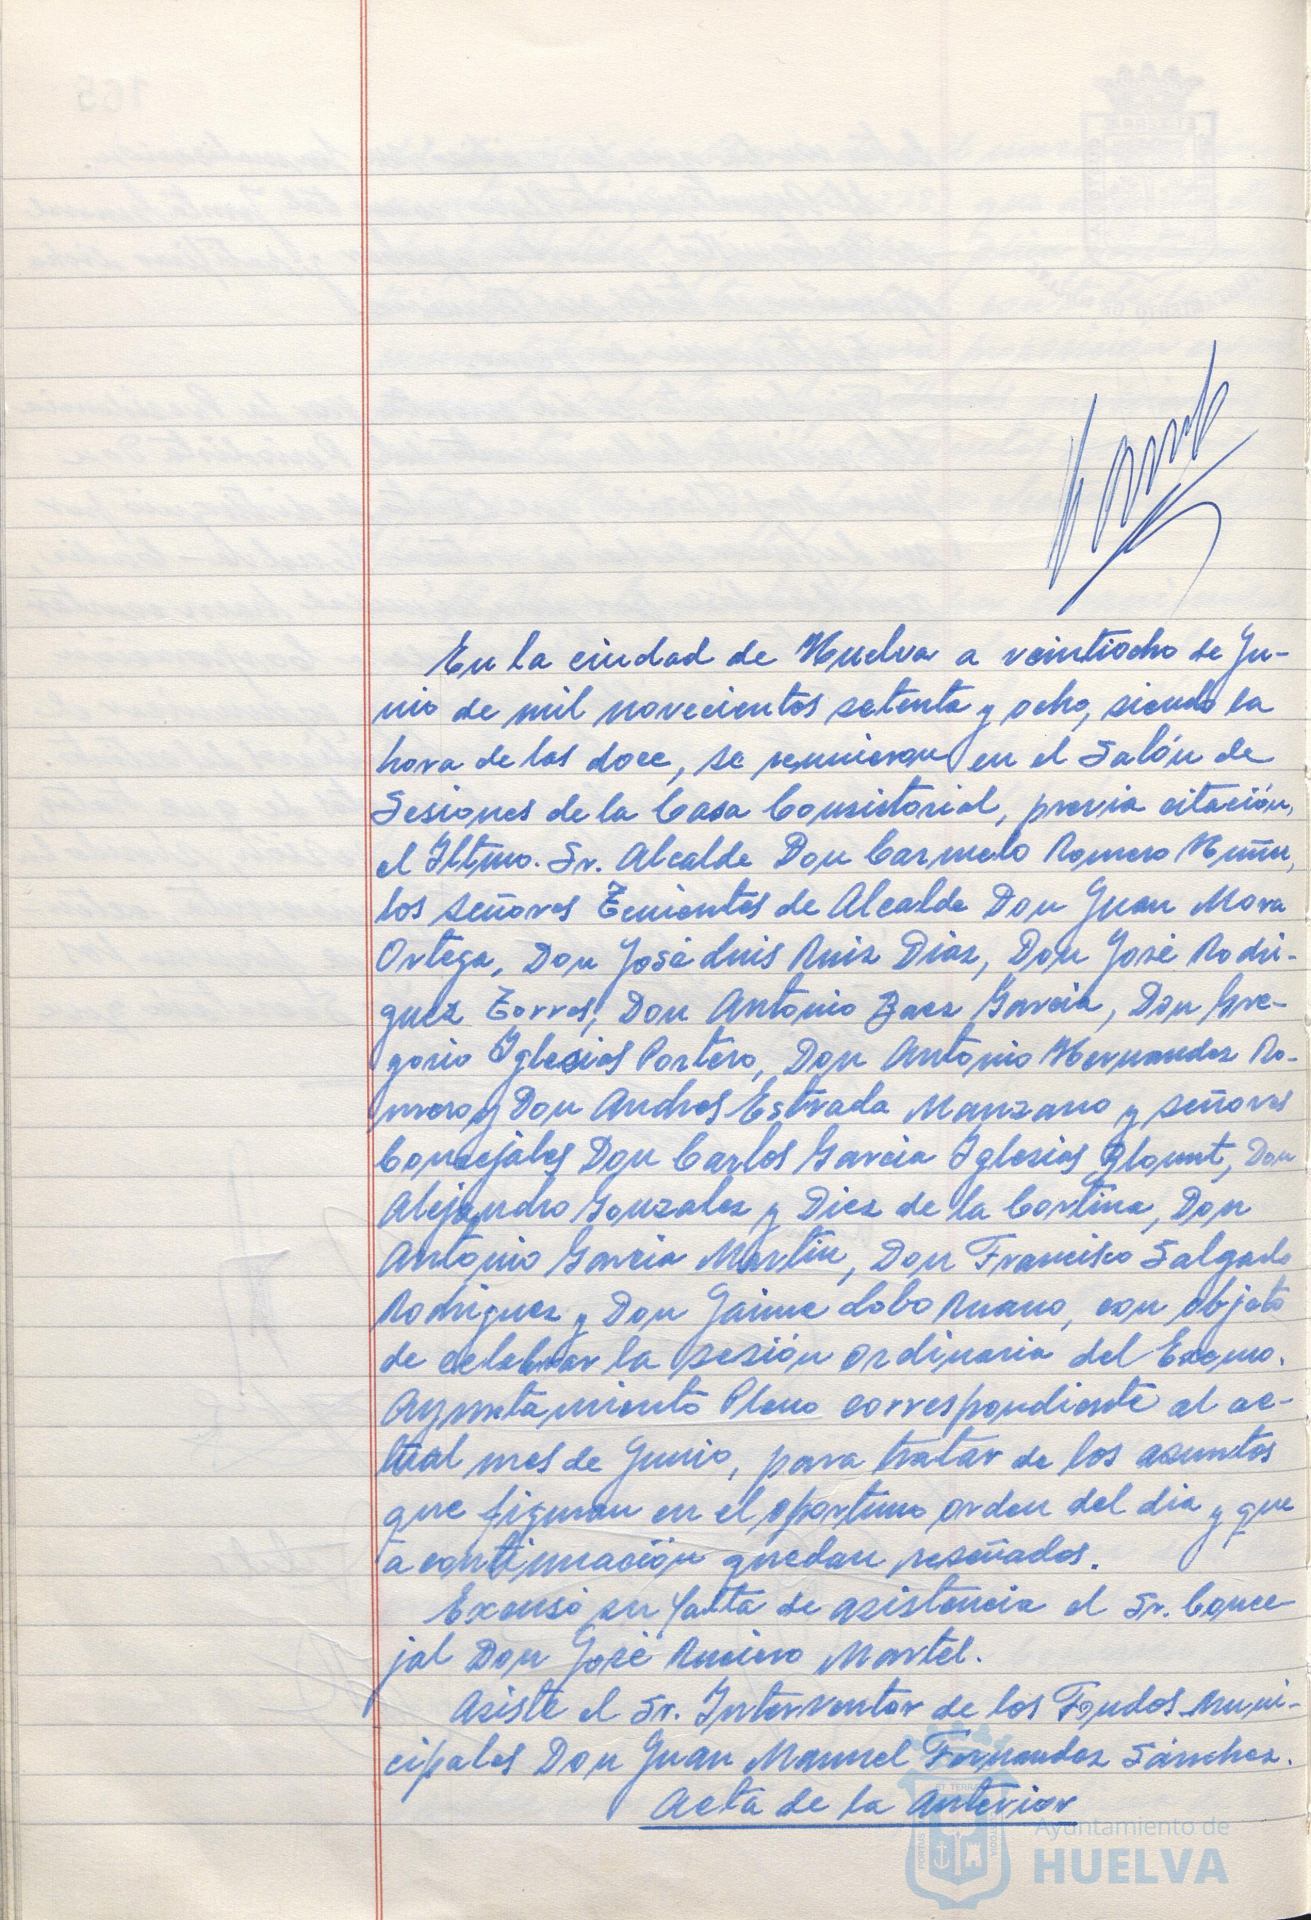 En la ciudad de Huelva a veintiocho de Ju-
nio de mil novecientos setenta y ocho, siendo la
hora de las doce, se reunieron en el Salón de
Sesiones de la Casa Consistorial, previa citación,
el Iltmo. Sr. Alcalde Don Carmelo Romero Núñez,
los señores Tenientes de Alcalde Don Juan Mora
Ortega, Don José Luis Ruiz Díaz, Don José Rodri-
guez Torres, Don Antonio Baez García, Don Gre-
gorio Iglesias Portero, Don Antonio Hernandez Ro-
mero y Don Andres Estrada Manzano y señores
Concejales Don Carlos García Iglesias Blount, Don
Alejandro Gonzalez y Diez de la Cortina, Don
Antonio García Martín, Don Francisco Salgado
Rodriguez y Don Jaime Lobo Ruano, con objeto
de celebrar la sesión ordinaria del Excmo.
Ayuntamiento Pleno correspondiente al ac-
tual mes de Junio, para tratar de los asuntos
que figuran en el oportuno orden del dia y que
a continuación quedan reseñados.
Excusó su falta de asistencia el Sr. Conce-
jal Don José Martel.
Asiste el Sr. Interventor de los Fondos Muni-
cipales Don Juan Manuel Fernandez Sánchez.
Acta de la anterior
Ayuntamiento de
HUELVA